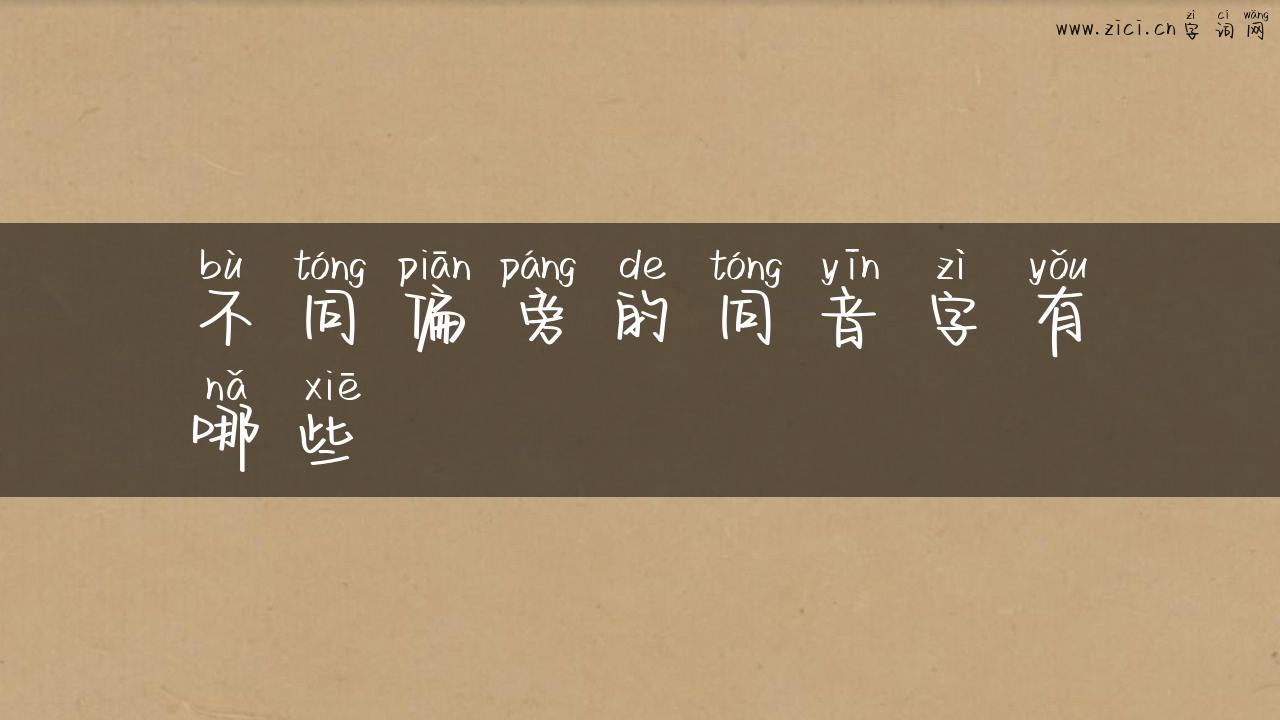 zì cí wǎng
www.zici.cn 字词网
bù tóng piān páng de tóng yīn zì yǒu
不同偏旁的同音字有
nǎ xiē
哪些